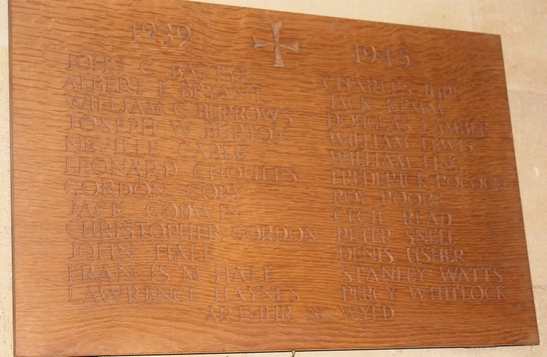 1939 1945
JOHN C.
ALBERT E BRYANT
WILLIAM C BURROWS
JOSEPH W
NEVILLE CABLE
LEONARD CHOULES
GORDON COBY
JACK GODWIN
CHRISTOPHER GORDON
JOHN HALE
FRANCIS M HALE
LAWRENCE HAYNES
CHARLES JUDE
JACK
DOUGLAS LAMBLE
WILLIAM LEWIS
WILLIAM LING
FREDERICK POCOCK
ROY POORE
CECIL READ
PETER SNELL
DENIS USHER
STANLEY WATTS
PERCY WHITLOCK
ARTHUR W. WYED